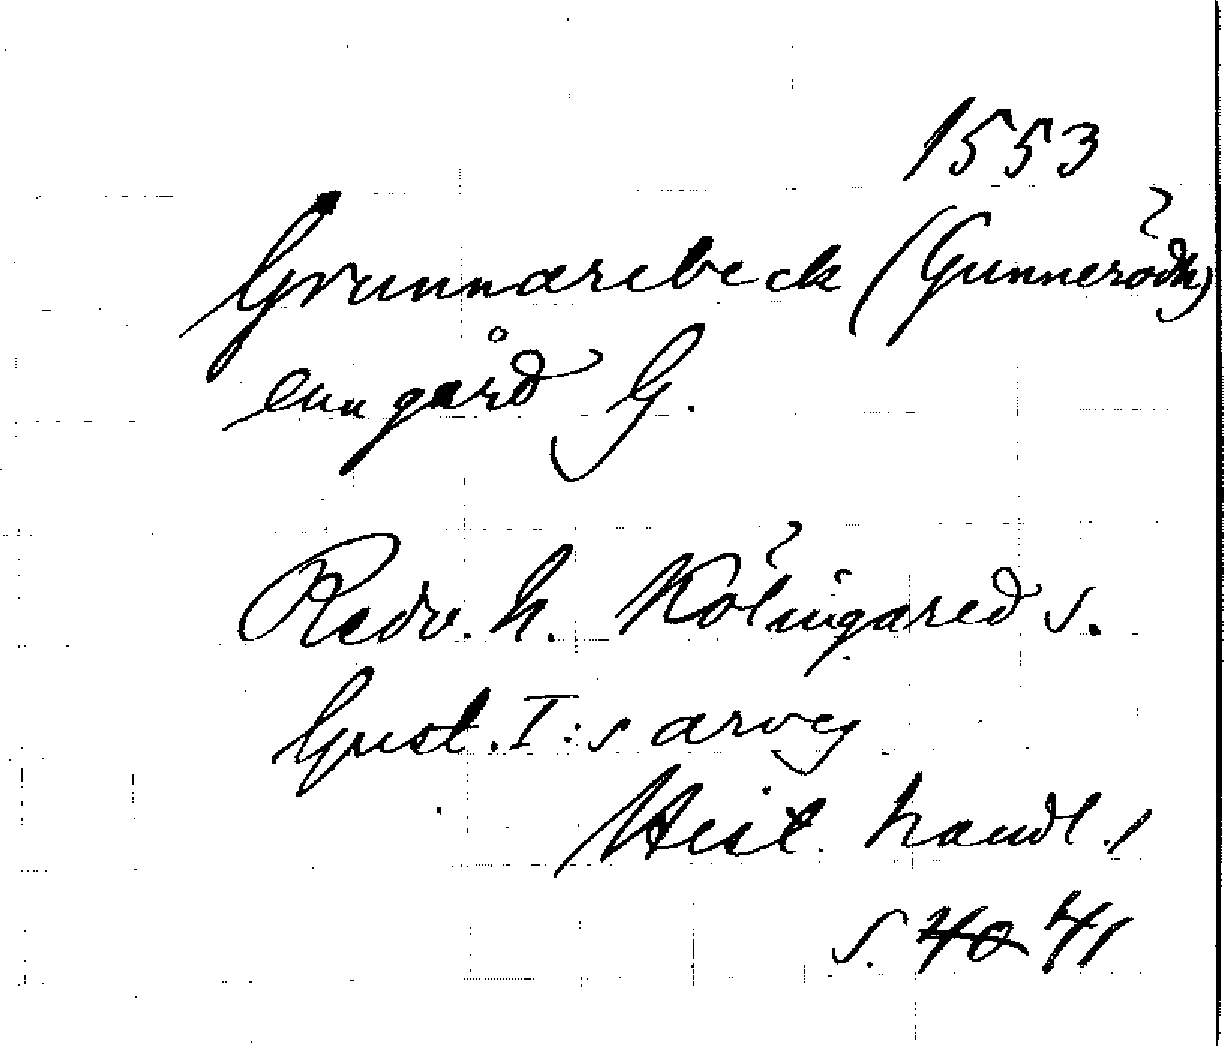 1553
Grunnarebeck (Gunnerödh)
enn gård G.
Redv. h. Kölingared s.
Gust. I:s arveg
Hist. handl. 1
s. 40 41